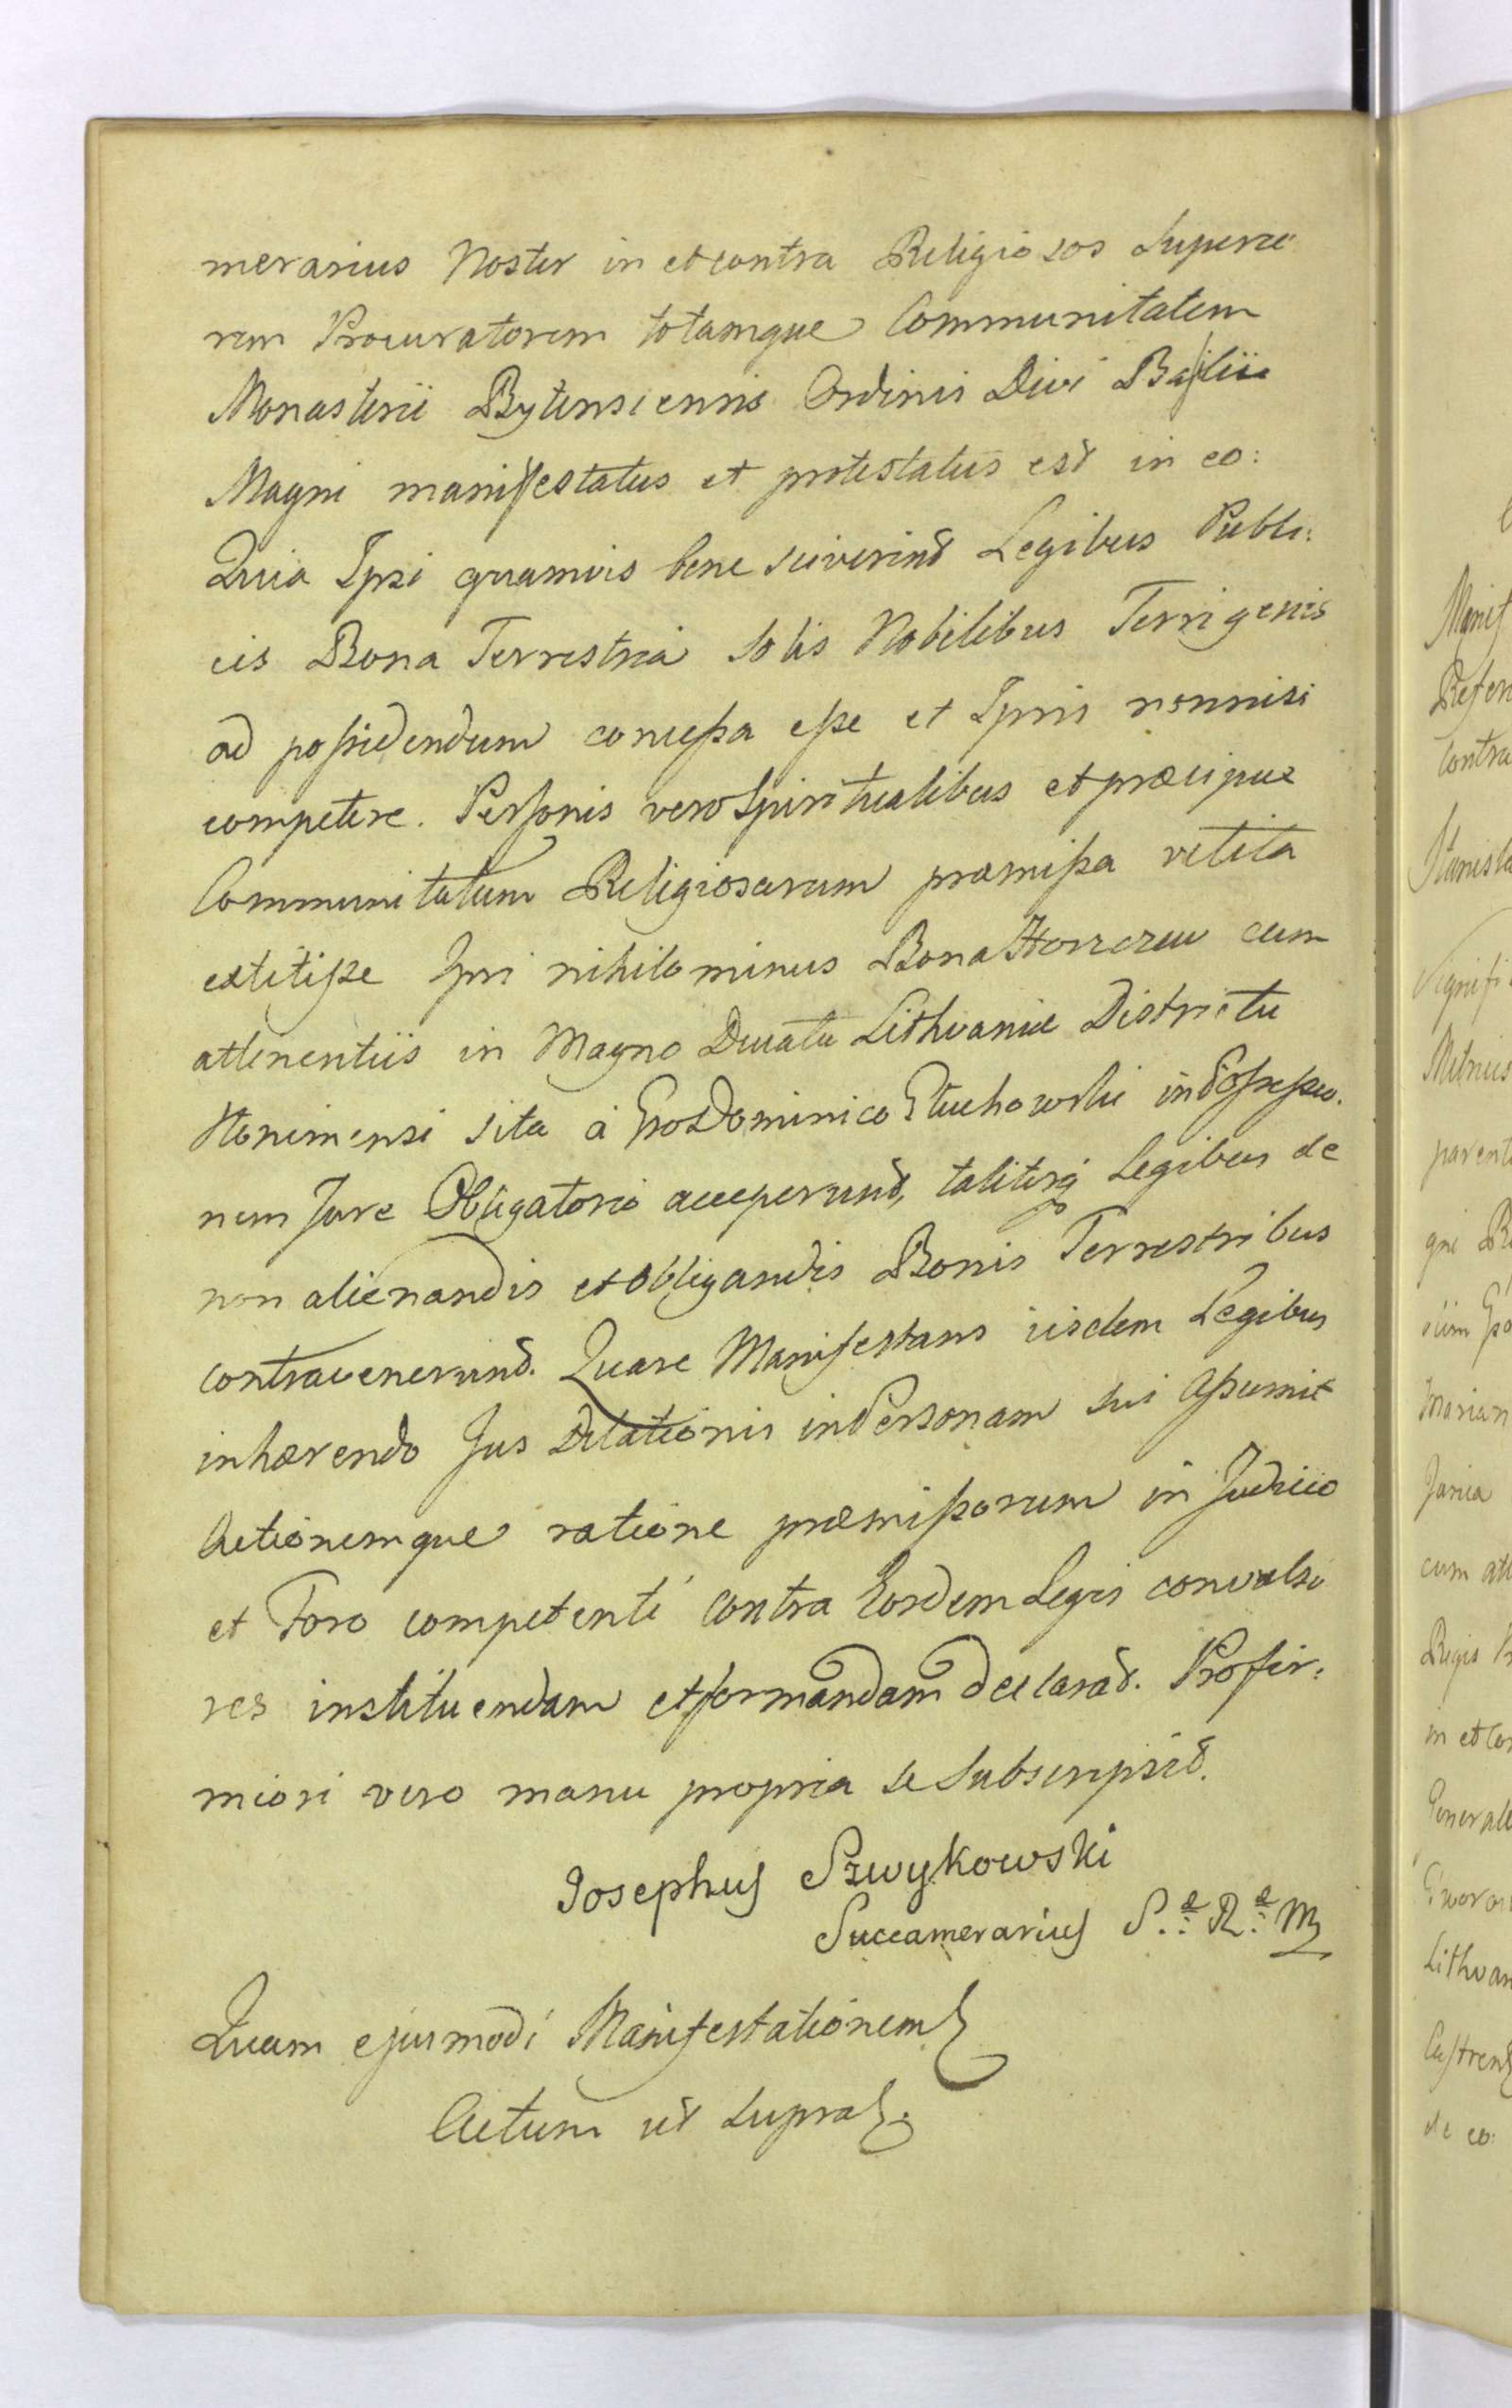 merarius Noster in et contra Religiosos Superio
rem Procuratorem totamque Communitatem
Monasterii Bytensiensis Ordinis Divi Basilii
Magni manifestatus et protestatus est in eo:
Quia Ipsi quamvis bene sciverint Legibus Publi:
cis Bona Terrestria solis Nobilibus Terrigenis
ad possidendum concessa esse et Ipsis nonnisi
competere. Personis vero Spiritualibus et præcipue
Communitatum Religiosarum præmissa vetita
extitisse Ipsi nihilominus Bona cum
attenentiis in Magno Ducatu Lithvaniæ Districtu
Slonimensi sita à Gso Dominico in Possessio.
nem Jure Obligatorio acceperunt, taliterq Legibus de
non alienandis et obligandis Bonis Terrestribus
contravenerunt. Quare Manifestans iisdem Legibus
inhærendo Jus Delationis in Personam sui assumit
Actionemque ratione præmissorum in Judicio
et Foro competenti contra Eosdem Legis convulso
res instituendam et formandam declarat. Pro fir:
miori vero manu propria se subscripsit.
Josephus Szwykowski
Succamerarius S. R. M
Quam ejusmodi Manifestationem
Actum ut supra.
Manif
Refer
contra
Stanisla
Signifi
Metrics
parent
qui R
Marian
Juria
cum att
Regis
in et con
Generale
Lithvan
de eo: